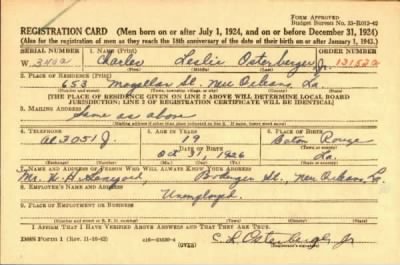 FORM APPROVED
Budget Bureau No. 33-R013-42
REGISTRATION CARD (Men born on or after July 1, 1924, and on or before December 31, 1924)
(Also for the registration of men as they reach the 18th anniversary of the date of their birth on or after January 1, 1943.)
SERIAL NUMBER 1. NAME (Print) ORDER NUMBER
W Charles Leslie Osterberger Jr.
(First) (Middle) (Last)
2. PLACE OF RESIDENCE (Print)
653 St. New Orleans, La
[THE PLACE OF RESIDENCE GIVEN ON LINE 2 ABOVE WILL DETERMINE LOCAL BOARD
JURISDICTION; LINE 2 OF REGISTRATION CERTIFICATE WILL BE IDENTICAL]
3. MAILING ADDRESS
Same as above
4. TELEPHONE 5. AGE IN YEARS 6. PLACE OF BIRTH
3051 J. 19 Baton Rouge
DATE OF BIRTH
Oct 31 1926 La.
7. NAME AND ADDRESS OF PERSON WHO WILL ALWAYS KNOW YOUR ADDRESS
Mr. St., New Orleans, La
8. EMPLOYER'S NAME AND ADDRESS
Unemployed
9. PLACE OF EMPLOYMENT OR BUSINESS
I AFFIRM THAT I HAVE VERIFIED ABOVE ANSWERS AND THAT THEY ARE TRUE.
DSS Form 1 (Rev. 11-16-42) (OVER) C. L. Osterberger Jr
(Registrant's signature)